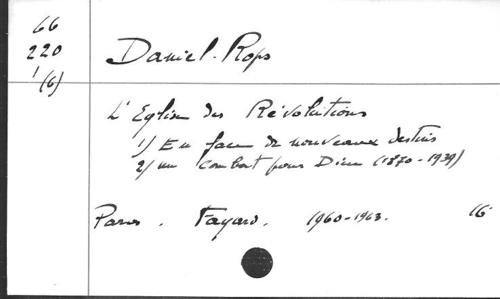 66
220
1
(6)
Daniel-Rops
L'Eglise des Révolutions
1) En face de nouveaux destins
2) un combat pour Dieu (1870-1939)
Paris. Fayard. 1960-1963. 16°